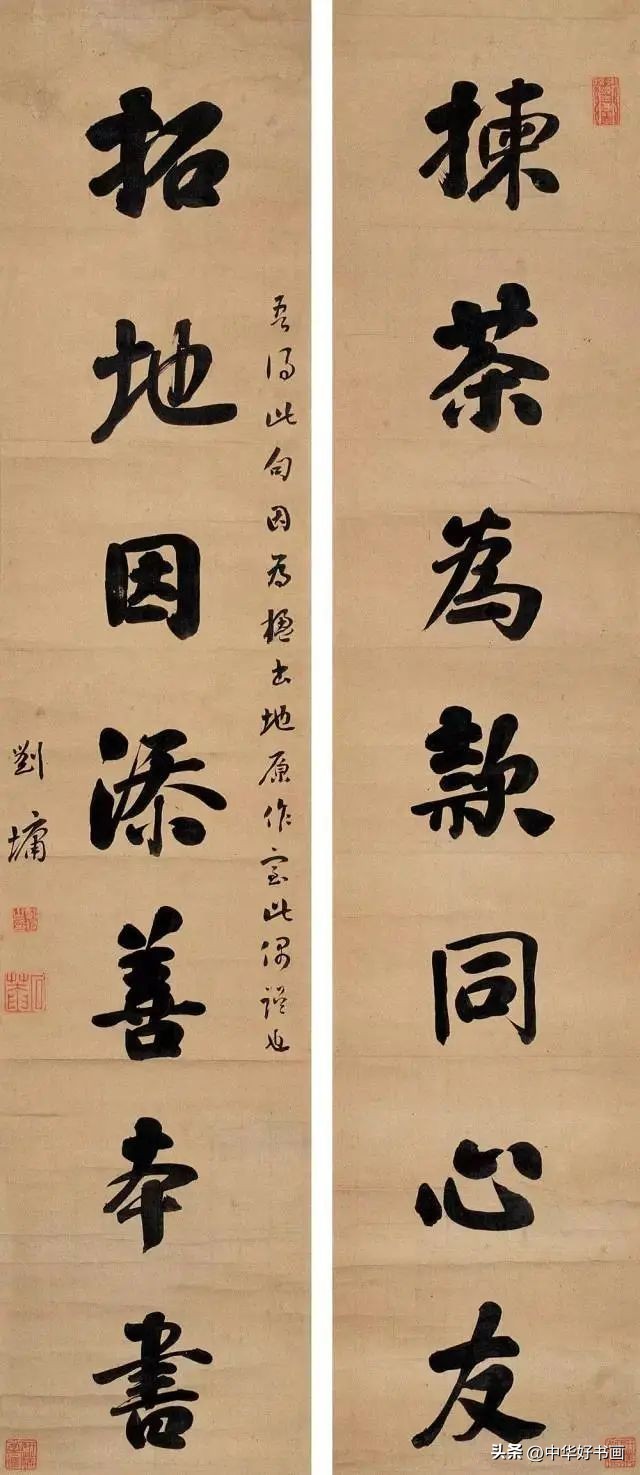 揀茶為款同心友
拓地因添善本書
吾得此句因為楹出地原作室此偶誤也
劉墉
头条 @中华好书画